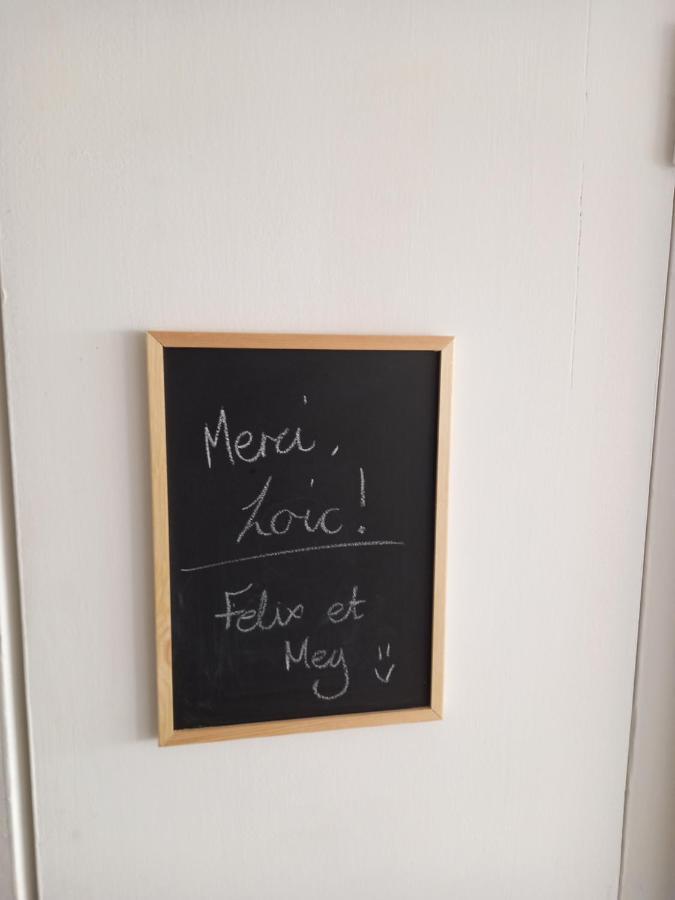 Merci,
Loic!
Felix et
Mey :)